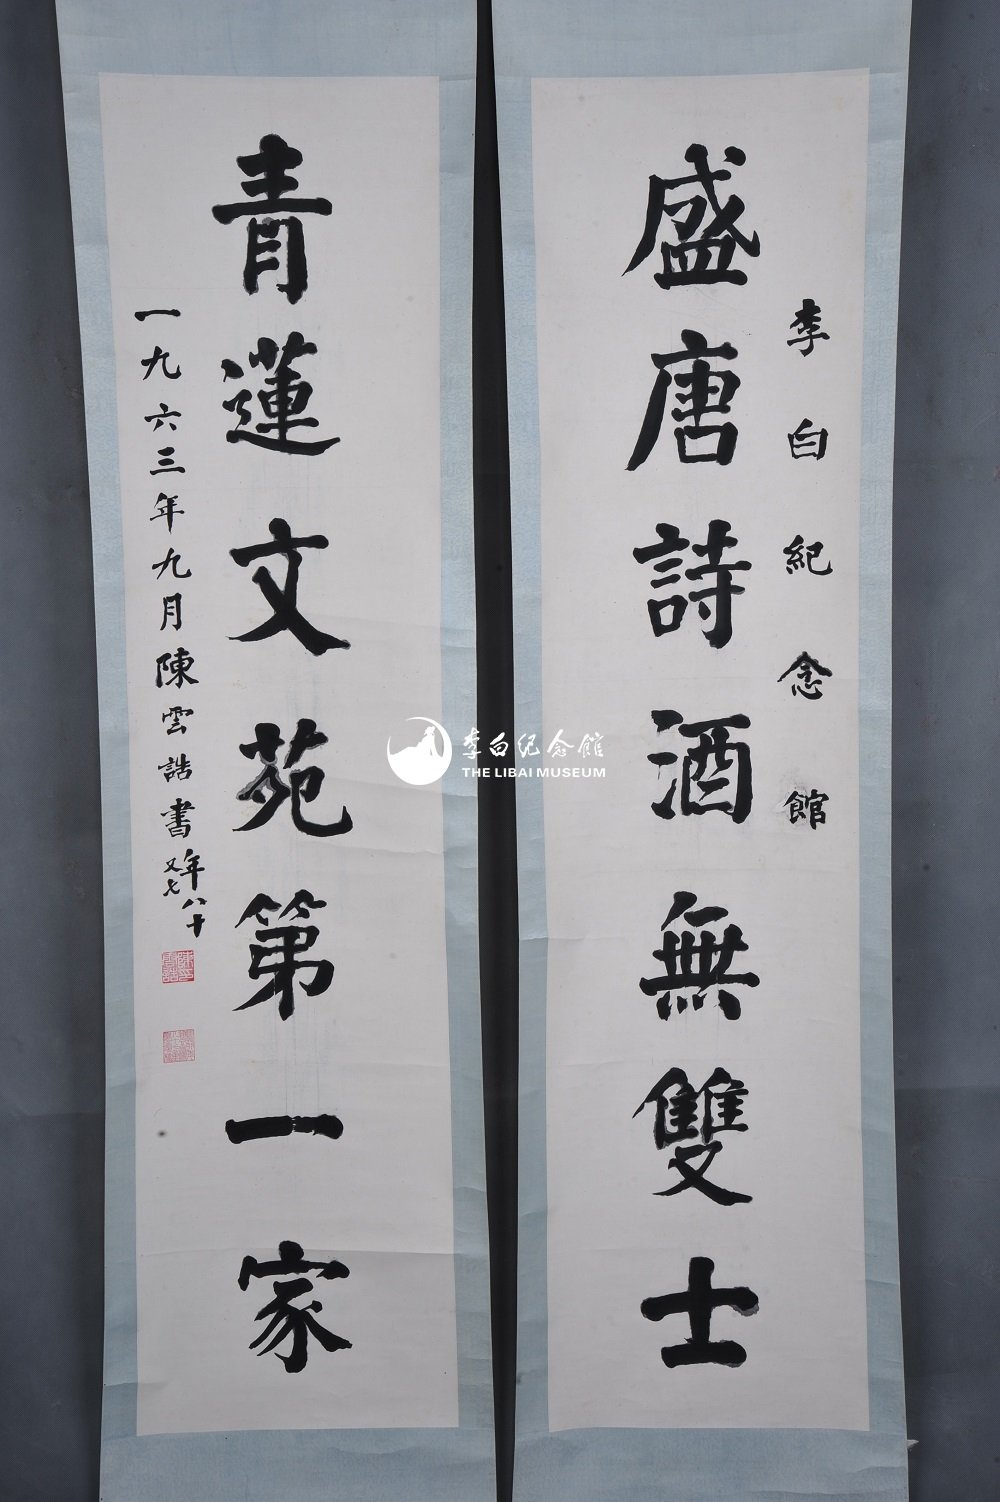 李白紀念館
盛唐詩酒無雙士
青蓮文苑第一家
一九六三年九月陳雲誥書年八十又七
陳雲誥印
李白纪念館
THE LIBAI MUSEUM